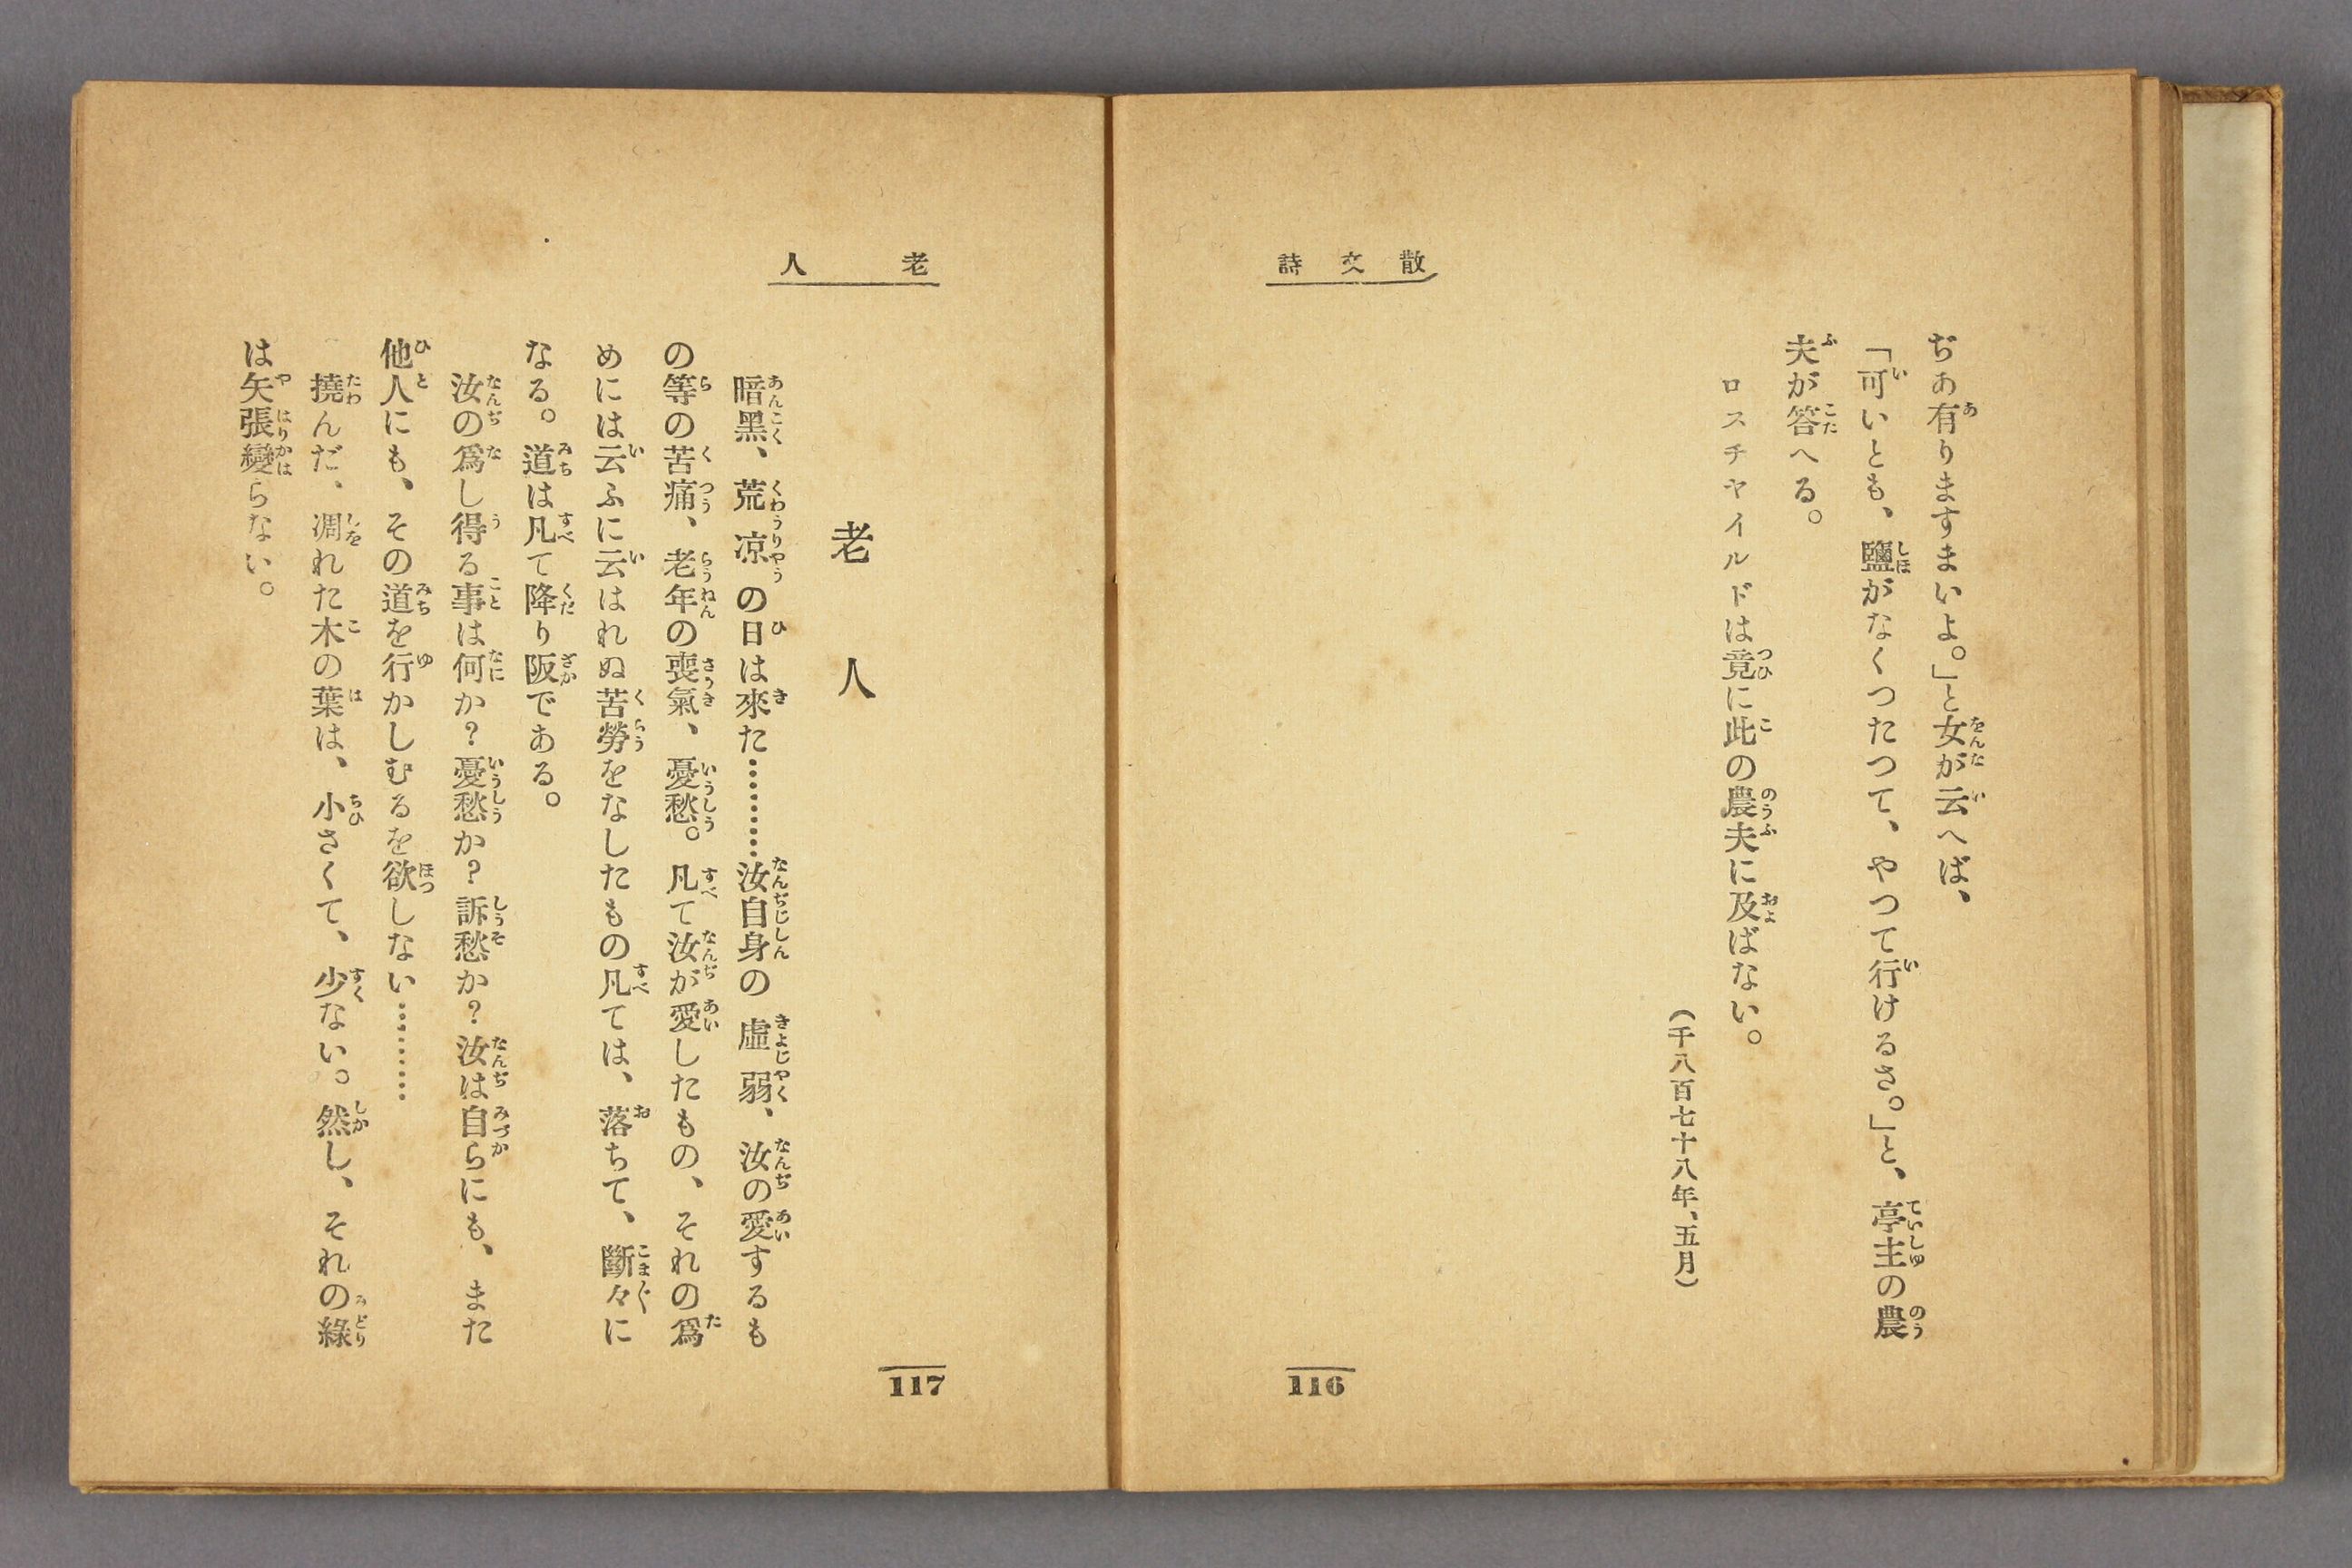 散文詩
ぢあ有りますまいよ。」と女が云へば、
「可いとも、鹽がなくつたつて、やつて行けるさ。」と、亭主の農
夫が答へる。
ロスチヤイルドは竟に此の農夫に及ばない。
(千八百七十八年、五月)
116
老人
老人
暗黑、荒凉の日は來た…………汝自身の虛弱、汝の愛するも
の等の苦痛、老年の喪氣、憂愁。凡て汝が愛したもの、それの爲
めには云ふに云はれぬ苦勞をなしたもの凡ては、落ちて、斷々に
なる。道は凡て降り阪である。
汝の爲し得る事は何か?憂愁か?訴愁か?汝は自らにも、また
他人にも、その道を行かしむるを欲しない…………
撓んだ、凋れた木の葉は、小さくて、少ない。然し、それの綠
は矢張變らない。
117